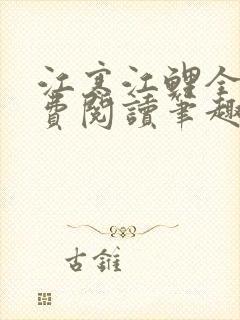 江寒江鯉全
費閱讀筆趣
古錐